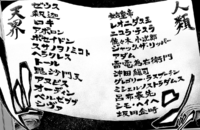 天界
ゼウス
釈迦
ロキ
アポロン
ポセイドン
スサノヲノミコト
ヘラクレス
トール
毘沙門天
アヌビス
オーディン
ベルゼブブ
シヴァ
人類
始皇帝
レオニダス王
ニコラ・テスラ
佐々木小次郎
ジャック・ザ・リッパー
アダム
雷電為右衛門
沖田総司
グレゴリー・ラスプーチン
ミシェル・ノストラダムス
呂布奉先
シモ・ヘイヘ
坂田金時